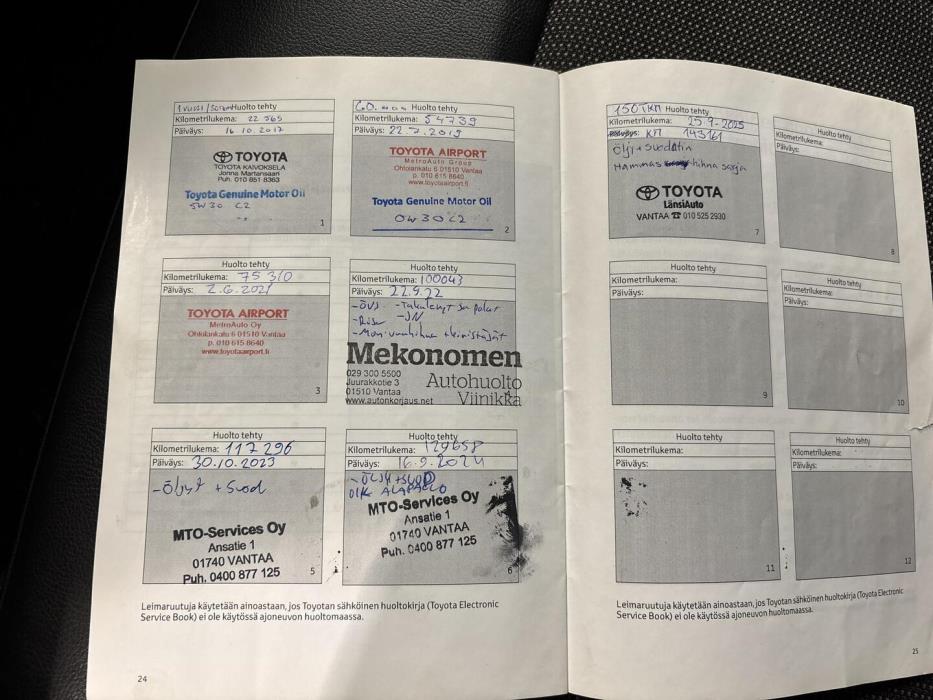 1 vuosi/ Huolto tehty
Kilometrilukema: 22 565
Päiväys: 16.10.2017
TOYOTA
TOYOTA KAIVOKSELA
Jonna Martansaari
Puh. 010 851 8363
Toyota Genuine Motor Oil
5W30 C2
1
Huolto tehty
Kilometrilukema: 54739
Päiväys: 22.7.2019
TOYOTA AIRPORT
MetroAuto Group
Ohtolankatu 6 01510 Vantaa
p. 010 615 8640
www.toyotaairport.fi
Toyota Genuine Motor Oil
0W30 C2
2
Huolto tehty
Kilometrilukema: 75 310
Päiväys: 2.6.2021
TOYOTA AIRPORT
MetroAuto Oy
Ohtolankatu 6 01510 Vantaa
p. 010 615 8640
www.toyotaairport.fi
3
Huolto tehty
Kilometrilukema: 100043
Päiväys: 22.9.22
-JN
Mekonomen
029 300 5500
Juurakkotie 3
01510 Vantaa
www.autonkorjaus.net
Autohuolto
Viinikka
Huolto tehty
Kilometrilukema: 117 296
Päiväys: 30.10.2023
-Öljyt + Suod
MTO-Services Oy
Ansatie 1
01740 VANTAA
Puh. 0400 877 125
5
Huolto tehty
Kilometrilukema: 129658
Päiväys: 16.9.2024
- ÖLJY+SUOD
MTO-Services Oy
Ansatie 1
01740 VANTAA
Puh. 0400 877 125
6
Leimaruutuja käytetään ainoastaan, jos Toyotan sähköinen huoltokirja (Toyota Electronic
Service Book) ei ole käytössä ajoneuvon huoltomaassa.
24
150TKM Huolto tehty
Kilometrilukema: 25.9-2025
Päiväys: KM 143161
Öljy + suodatin
Hammas hihna sarja
TOYOTA
LänsiAuto
VANTAA ☎ 010 525 2930
7
Huolto tehty
Kilometrilukema:
Päiväys:
8
Huolto tehty
Kilometrilukema:
Päiväys:
9
Huolto tehty
Kilometrilukema:
Päiväys:
10
Huolto tehty
Kilometrilukema:
Päiväys:
11
Huolto tehty
Kilometrilukema:
Päiväys:
12
Leimaruutuja käytetään ainoastaan, jos Toyotan sähköinen huoltokirja (Toyota Electronic
Service Book) ei ole käytössä ajoneuvon huoltomaassa.
25